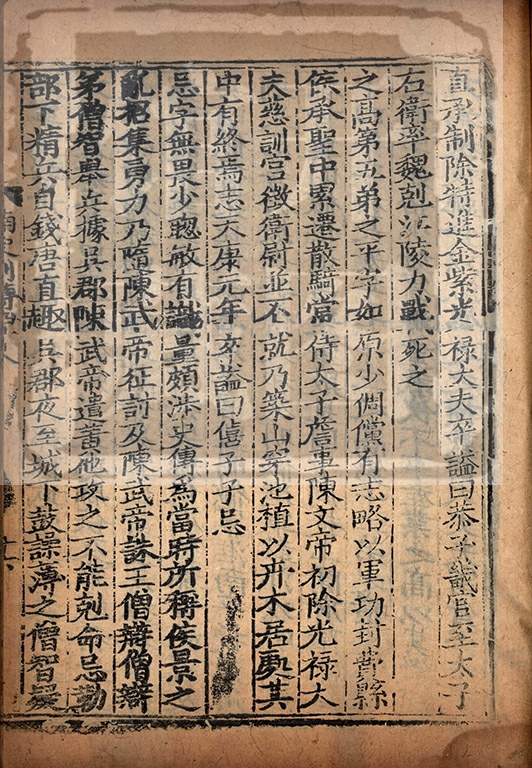 直承制除特進金紫光祿大夫卒謚曰恭子畿官至太子
右衛率魏剋江陵力戰死之
之高第五弟之平字如原少倜儻有志略以軍功封費縣
侯承聖中累遷散騎常侍太子詹事陳文帝初除光祿大
夫慈訓宮衛尉並不就乃築山穿池植以卉木居處其
中有終焉志天康元年卒謚曰僖子子忌
忌字無畏少聰敏有識量頗涉史傳爲當時所稱侯景之
亂招集勇力乃隨陳武帝征討及陳武帝誅王僧辯僧辯
弟僧智舉兵據吳郡陳武帝遣黃他攻之不能剋命忌勒
部下精兵自錢唐直趣吳郡夜至城下鼓譟薄之僧智疑